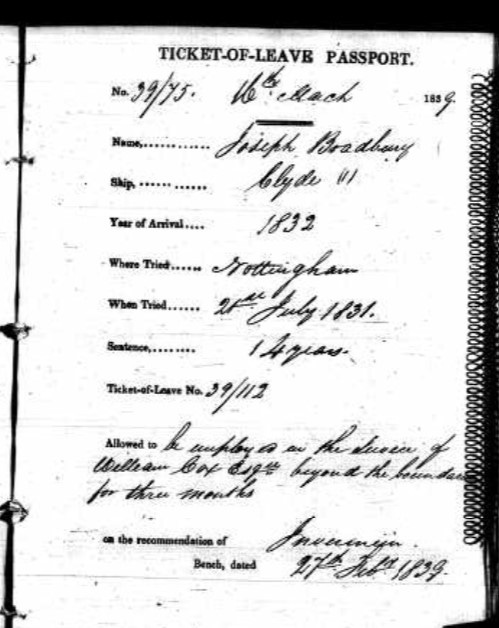 TICKET-OF-LEAVE PASSPORT.
No. 39/75. March 1839.
Name, Joseph Bradbury
Ship, Clyde
Year of Arrival 1832
Where Tried Nottingham
When Tried July 1831.
Sentence, 14 years.
Ticket-of-Leave No. 39/112
Allowed to be employed in the service of
William Cox Esqre beyond the boundaries
for three months
on the recommendation of Invermein
Bench, dated 27th Feby 1839.